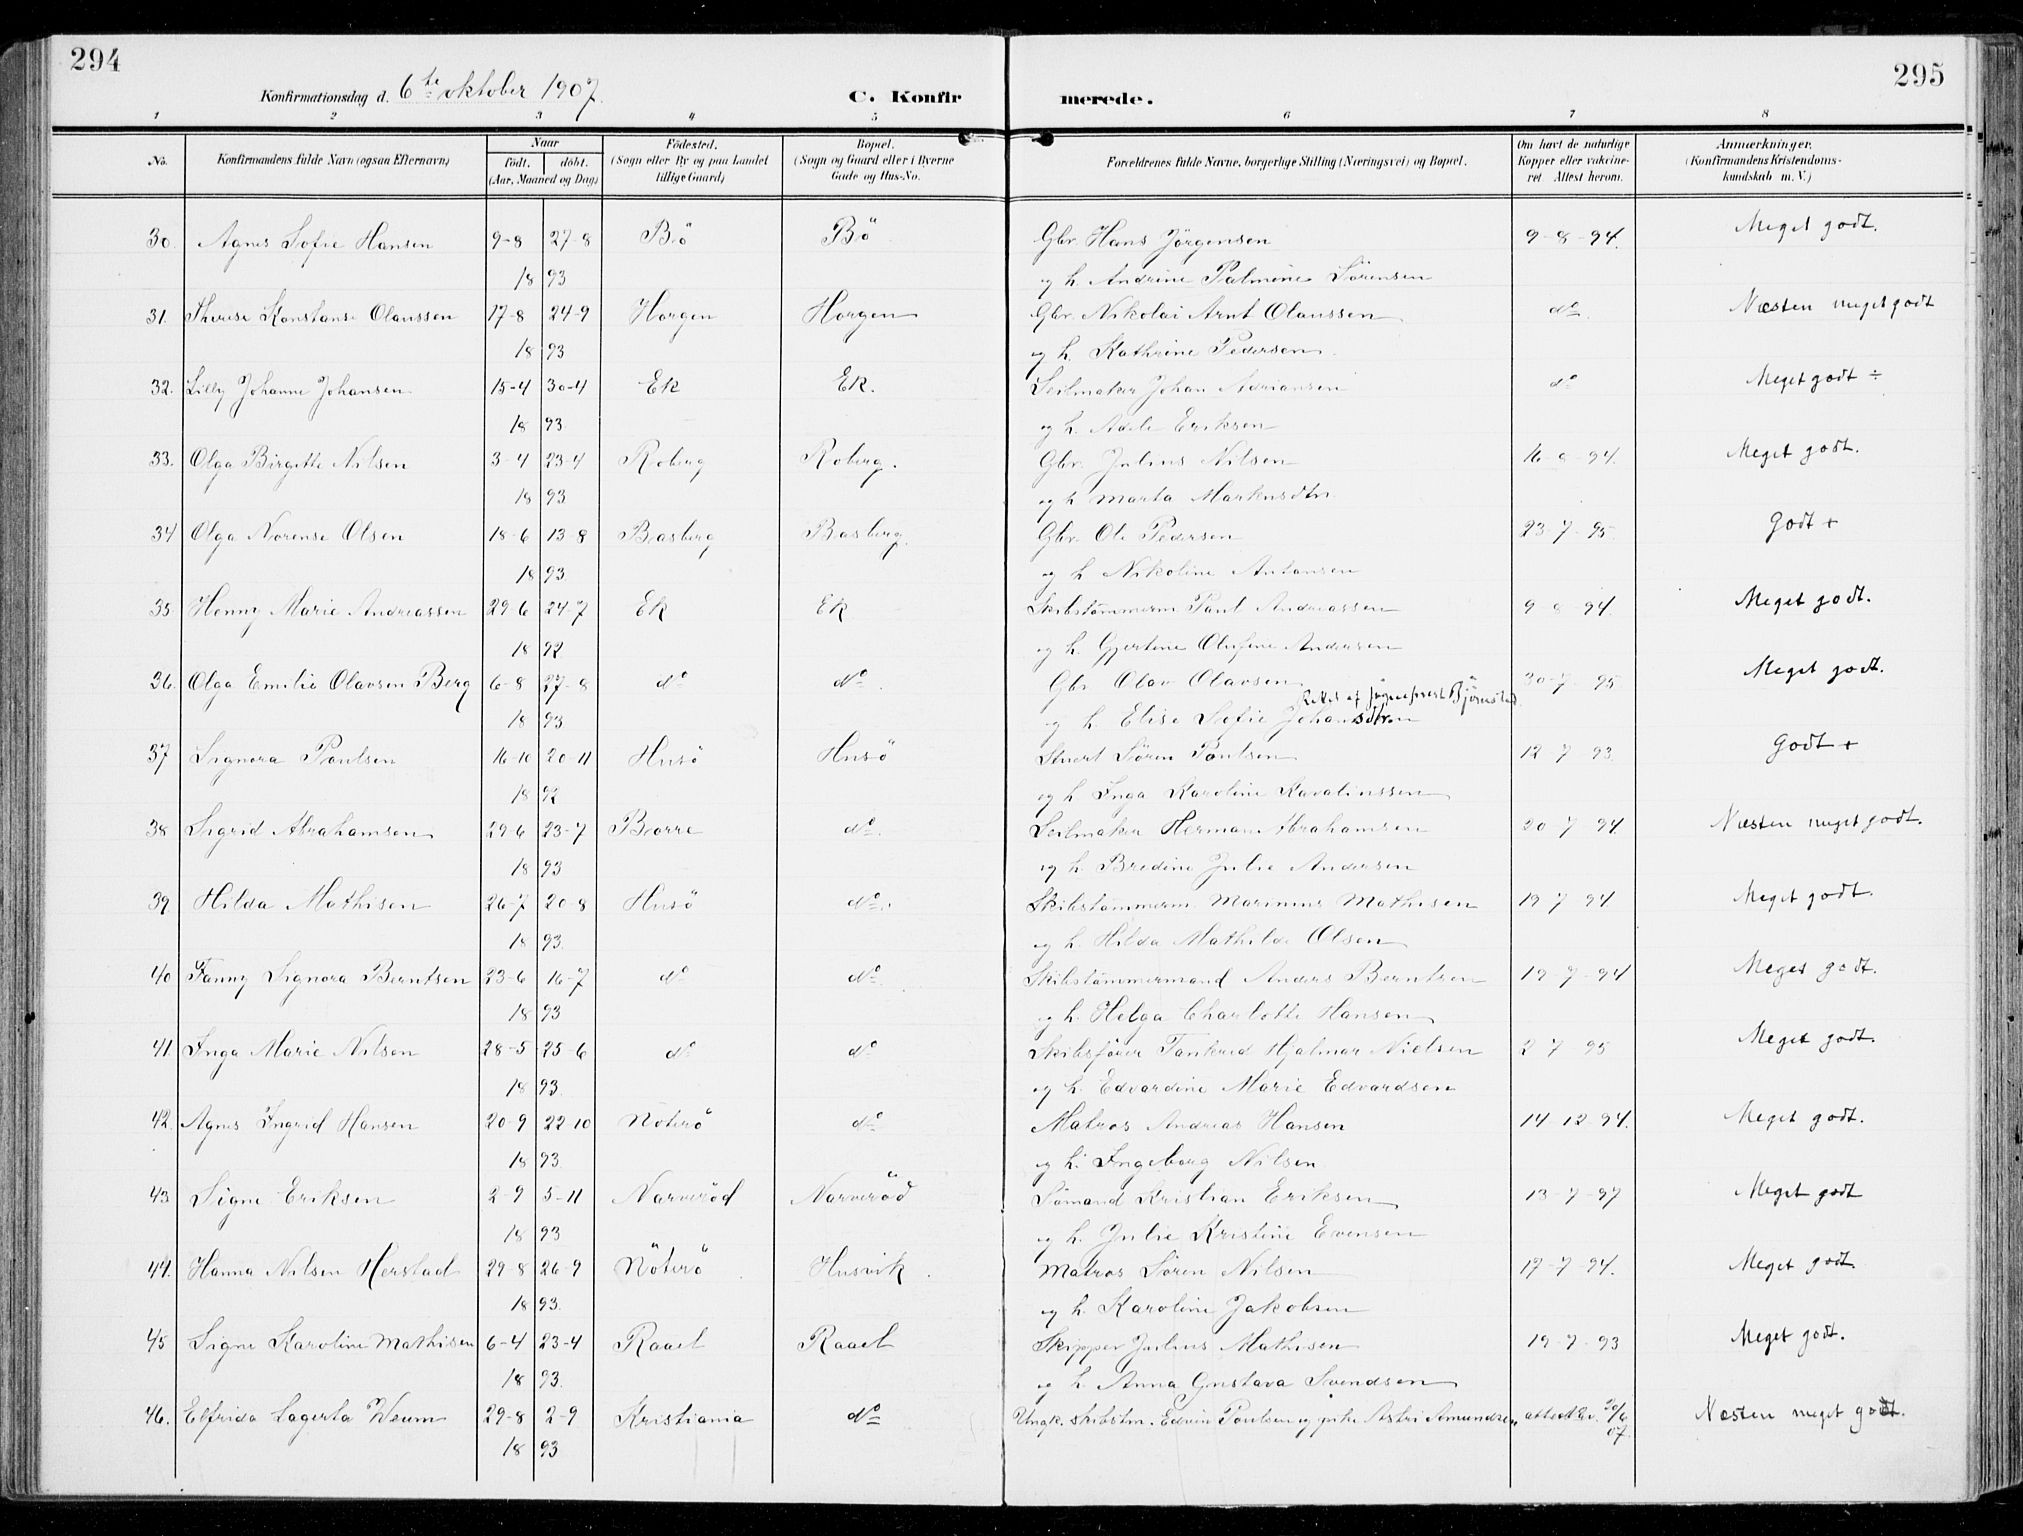 294
295
Konfirmationsdag d. 6te oktober 1907.
C. Konfir merede.
1 2 3 4 5 6 7 8
No. Konfirmandens fulde Navn (ogsaa Efternavn) Naar født. døbt. (Aar, Maaned og Dag) Födested. (Sogn eller By og paa Landet tillige Gaard) Bopæl. (Sogn og Gaard eller i Byerne Gade og Hus-No. Forældrenes fulde Navne, borgerlige Stilling (Næringsvei) og Bopæl. Om havt de naturlige Kopper eller vakcineret Attest herom. Anmærkninger, (Konfirmandens Kristendomskundskab m. V.)
30. Agnes Sofie Hansen 9-8 27-8 Bö Bö Gbr. Hans Jörgensen 9-8-94. Meget godt.
18 93 og h. Andrine Palmine Sörensen
31. Therese Konstanse Olaussen 17-8 24-9 Horgen Horgen Gbr. Nikolai Arnt Olaussen do. Næsten meget godt
18 93 og h. Kathrine Pedersen.
32. Lilly Johanne Johansen 15-4 30-4 Ek Ek. Seilmaker Johan Adriansen do Meget godt ÷
18 93 og h. Adele Eriksen
33. Olga Birgitte Nilsen 3-4 23-4 Roberg Roberg. Gbr. Julius Nilsen 94. Meget godt.
18 93 og h Marta Markusdtr.
34 Olga Norense Olsen 18-6 13-8 Basberg Basberg. Gbr. Ole Pedersen 23-7-95. Godt +
18 93 og h Nikoline Antonsen
35. Henny Marie Andreassen 29-6 24-7 Ek Ek Skibstömmerm Paul Andreassen 94. Meget godt.
18 92 og h. Gjertine Olufine Andersen
36. Olga Emilie Olavsen Berg 6-8 27-8 do do. Gbr Olav Olavsen 30-7-95 Meget godt.
Rettet af Sogneprest Björnstad
18 93 og h. Elise Sofie Johansdtr
37 Signora Poulsen 16-10 20-11 Husö Husö Stuert Sören Poulsen 12-7-93. Godt +
18 92 og h Inga Karoline Kavalinssen
38 Sigrid Abrahamsen 29-6 23-7 Borre do. Seilmaker Herman Abrahamsen 20-7-94 Næsten meget godt.
18 93 og h. Bredine Julie Andersen
39. Hilda Mathisen 26-7 20-8 Husö do. Skibstömmerm. Marinius Mathisen 19-7-94 Meget godt.
18 93. og h. Hilda Mathilde Olsen
40 Fanny Signora Berntsen 23-6 16-7 do do. Skibstömmermand Anders Berntsen 19-7-94 Meget godt.
18 93 og h. Helga Charlotte Hansen
41. Inga Marie Nilsen 28-5 25-6 do do Skibsfører Tankred Hjalmar Nielsen 2-7-95 Meget godt.
18 93. og h. Edvardine Marie Edvardsen
42. Agnes Ingrid Hansen 20-9 22-10 Nöterö do Matros Andreas Hansen 14-12-94. Meget godt.
18 93. og h. Ingeborg Nilsen
43 Signe Eriksen 2-9 5-11 Narveröd Narveröd Sömand Kristian Eriksen 13-7-97 Meget godt
18 93 og h. Julie Kristine Evensen
44. Hanna Nilsen Herstad 29-8 26-9 Nöterö Husvik. Matros Sören Nilsen 17-7-94. Meget godt.
18 93. og h. Karoline Jakobsen
45 Signe Karoline Mathisen 6-4 23-4 Raael Raael Skipper Julius Mathisen 19-7-93 Meget godt.
18 93. og h. Anna Gustava Svendsen
46. Elfrida Lagerta Weum 29-8 2-9 Kristiania do Ungk. skibstm. Edvin Poulsen og pike Astri Amundsen, 20/6 07. Næsten meget godt.
18 93